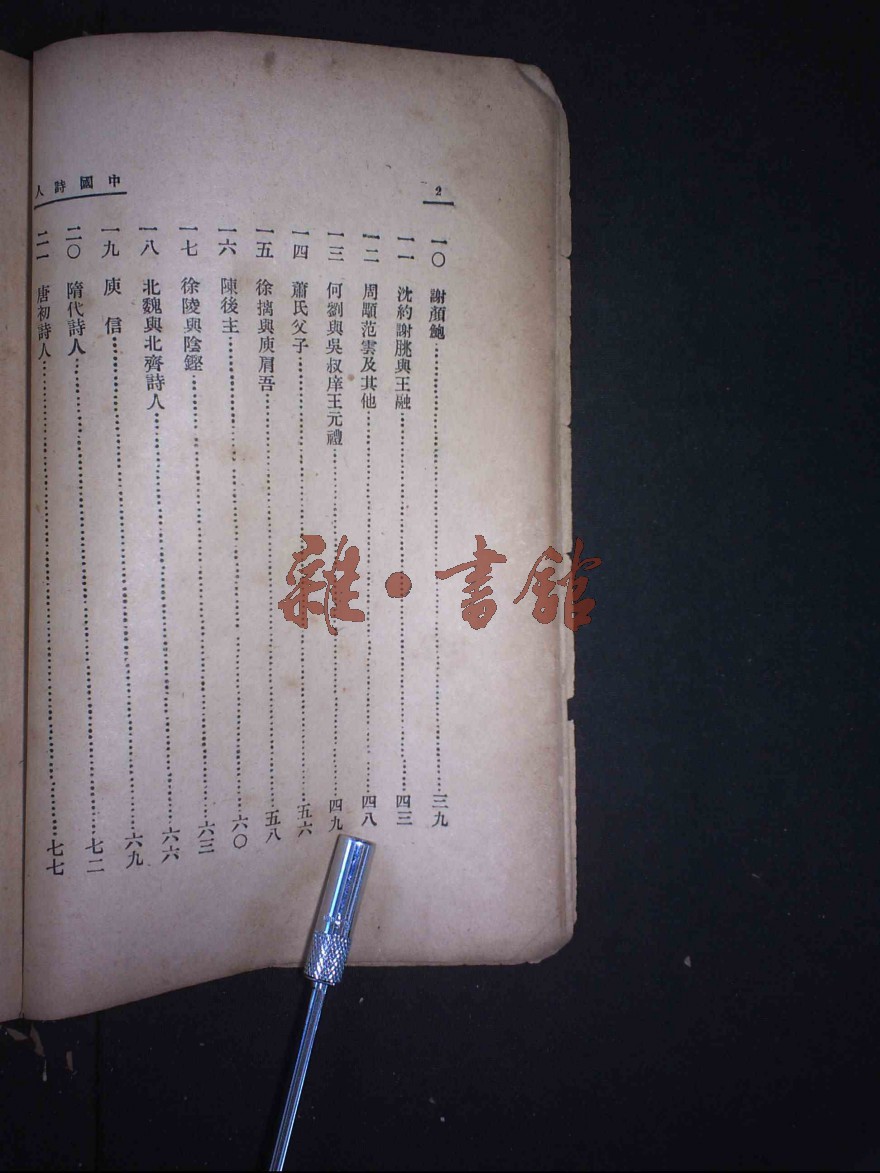 中國詩人
2
一〇 謝顏鮑 三九
一一 沈約謝朓與王融 四三
一二 周顒范雲及其他 四八
一三 何劉與吳叔庠王元禮 四九
一四 蕭氏父子 五六
一五 徐摛與庾肩吾 五八
一六 陳後主 六〇
一七 徐陵與陰鏗 六三
一八 北魏與北齊詩人 六六
一九 庾信 六九
二〇 隋代詩人 七二
二一 唐初詩人 七七
雜·書館